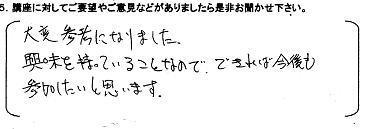 5. 講座に対してご要望やご意見などがありましたら是非お聞かせ下さい。
大変参考になりました。
興味を持っていることなので、できれば今後も
参加したいと思います。